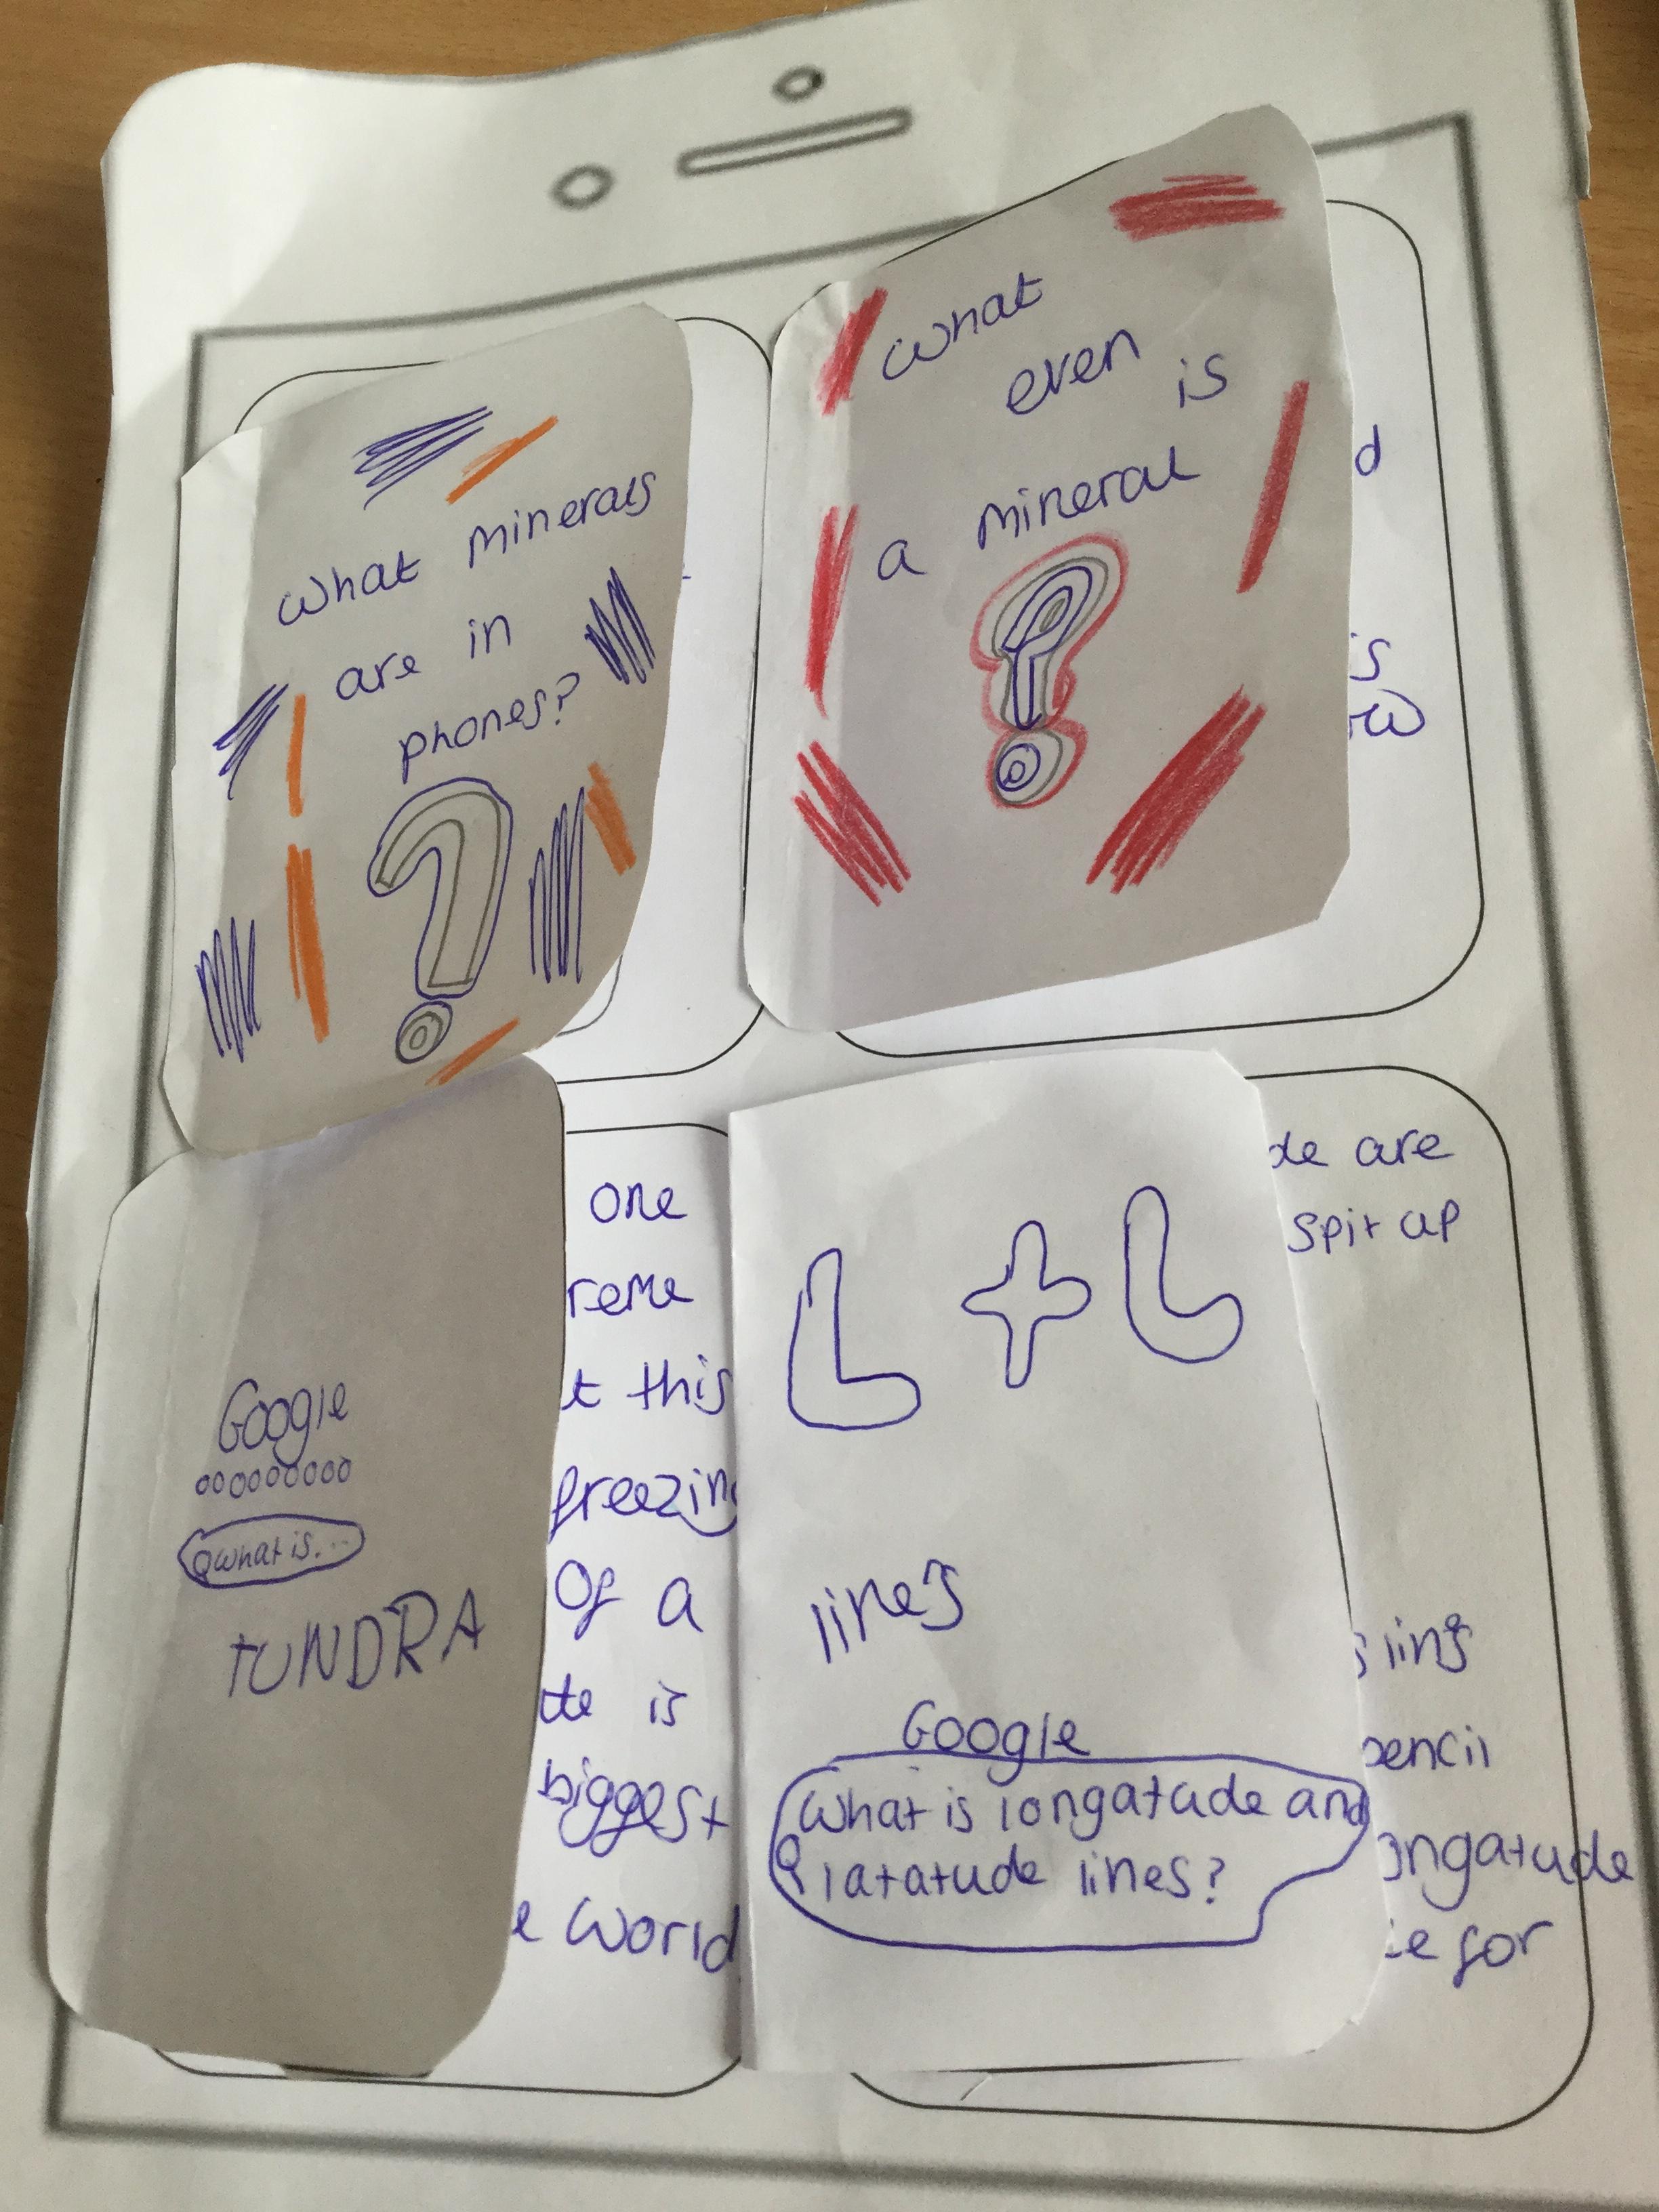 What minerals
are in
phones?
?
What
even is
a mineral
?
d
is
Google
ooooooooo
what is...
tUNDRA
one
reme
t this
freezing
Of a
te is
biggest
e World
L + L
lines
Google
What is longatude and
latatude lines?
de are
spit up
s lines
pencil
ongatude
ie for